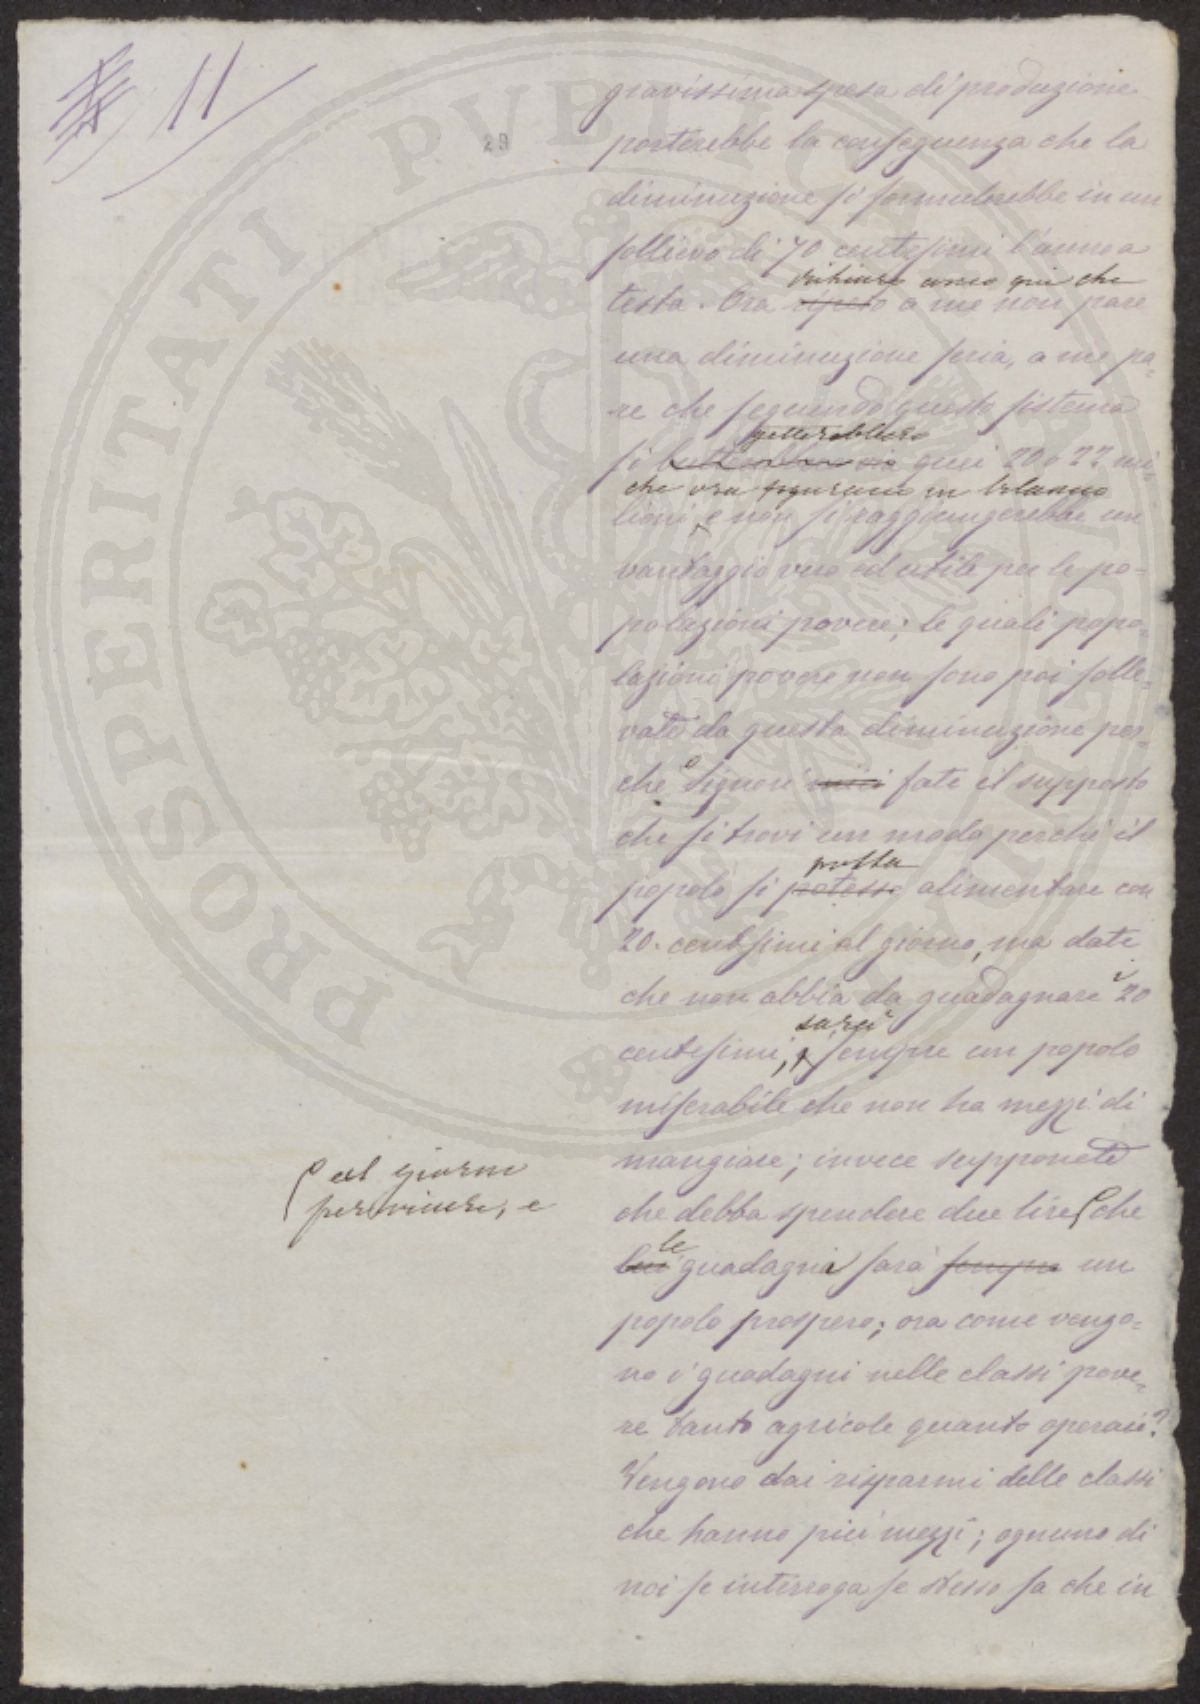 11
29
gravissima spesa di produzione
porterebbe la conseguenza che la
diminuzione si formulerebbe in un
sollievo di 70 centesimi l'anno a
dichiaro anco qui che
testa. Ora ripeto a me non pare
una diminuzione seria, a me pa-
re che seguendo questo sistema
getterebbero
si quei 20 o 22 mi-
che ora figurano in bilancio
lioni, e non si raggiungerebbe un
vantaggio vero ed utile per le po-
polazioni povere; le quali popo-
lazioni povere non sono poi solle-
vate da questa diminuzione per-
che o Signori miei fate il supposto
che si trovi un modo perchè il
possa
popolo si potesse alimentare con
20. centesimi al giorno, ma date
che non abbia da guadagnare i 20
sarà
centesimi, è sempre un popolo
miserabile che non ha mezzi di
mangiare; invece supponete
al giorno
per vivere, e
che debba spendere due lire che
le
lui guadagni sarà sempre un
popolo prospero; ora come vengo-
no i guadagni nelle classi pove-
re tanto agricole quanto operaie?
Vengono dai risparmi delle classi
che hanno più mezzi; ognuno di
noi se interroga se stesso sa che in
PROSPERITATI PVBLICAE